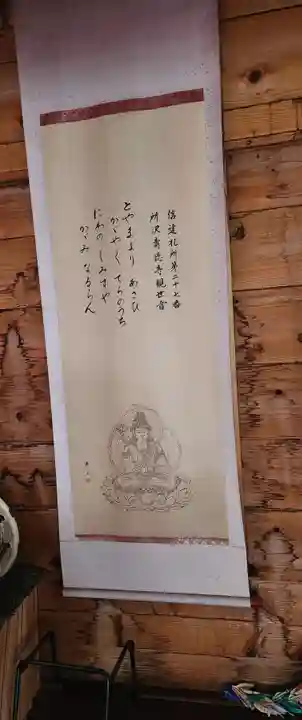 信達札所第二十七番
所沢寿徳寺観世音
とやまより あさひ
かゞやく てらのうち
にわの しみずや
かゞみ なるらん